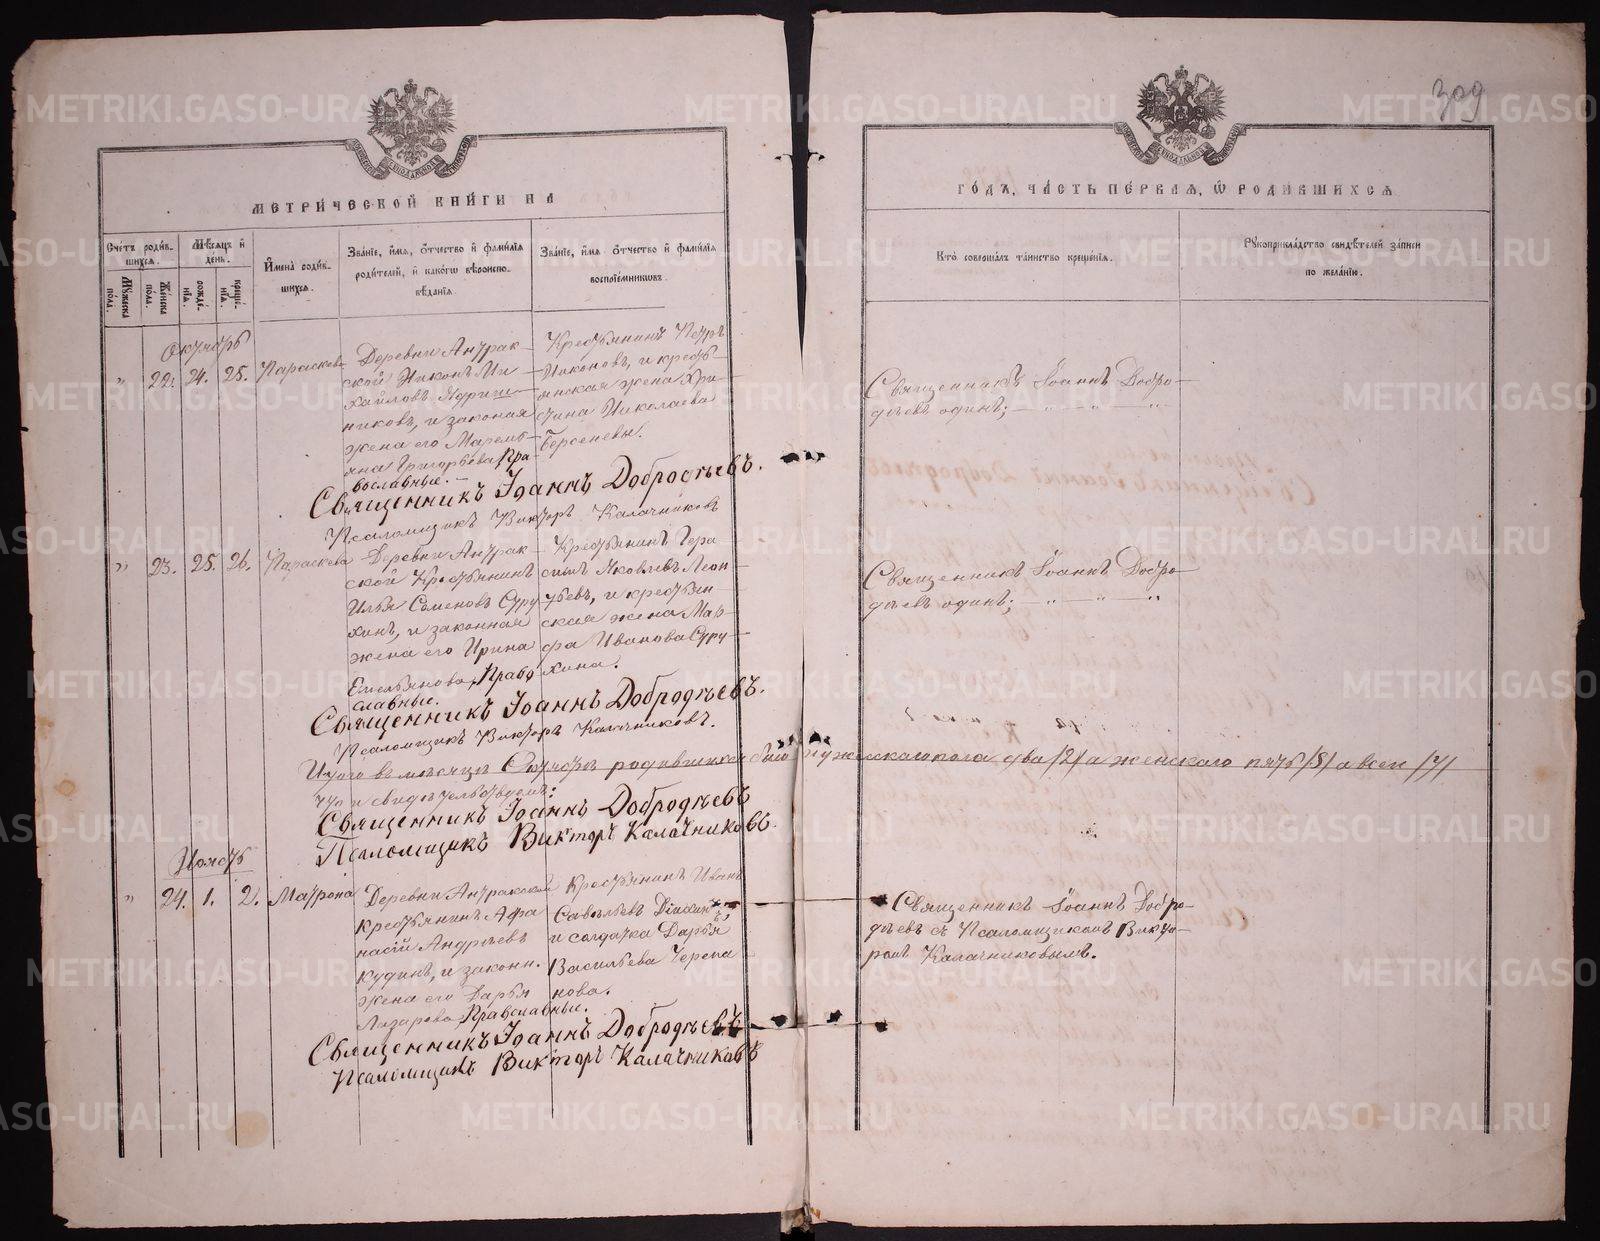 309
МЕТРИЧЕСКОЙ КНИГИ НА
ГОДЪ, ЧАСТЬ ПЕРВАЯ, Ѿ РОДИВШИХСЯ
Счетъ родив-
шихся.
Мужеска
пола.
Женска
пола.
Мѣсяцъ и
день.
рожде-
нія.
креще-
нія.
Имена родив-
шихся.
Званіе, имя, отчество и фамилія
родителей, и какогѡ вѣроиспо-
вѣданія.
Званіе, имя отчество и фамилія
воспріемниковъ.
Кто совершалъ таинство крещенія.
Рукоприкладство свидѣтелей записи
по желанію.
Октябрь
" 22. 24. 25. Параскева
Деревни Антрак-
ской Никонъ Ми-
хайловъ Ядриш-
никовъ, и законая
жена его Маремь-
яна Григорьева, Пра-
вославные.
Крестьянинъ Петръ
Никоновъ, и кресть-
янская жена Хри-
стина Николаева
Берсеневы.
Священникъ Іоаннъ Добро-
дѣевъ одинъ; — " — " — "
Священникъ Іоаннъ Добродѣевъ.
Псаломщикъ Викторъ Калачниковъ
" 23. 25. 26. Параскева
Деревни Антрак-
ской Крестьянинъ
Илья Семеновъ Суру-
хинъ, и законная
жена его Ирина
Емельянова, Право
славные.
Крестьянинъ Гера
симъ Яковлевъ Леон
тьевъ, и крестьян-
ская жена Мар-
фа Иванова Суру-
хина.
Священникъ Іоаннъ Добро-
дѣевъ одинъ; — " — " — "
Священникъ Іоаннъ Добродѣевъ.
Псаломщикъ Викторъ Калачниковъ.
Итого въ мѣсяцѣ Октябрѣ родившихся было мужескаго пола два /2/ а женскаго пять /5/ а всех /7/
и свидѣтельствуемъ:
Священникъ Іоаннъ Добродѣевъ
Псаломщикъ Викторъ Калачниковъ.
Ноябрь
" 24. 1. 2. Матрона
Деревни Антракской
Крестьянинъ Афа
насій Андреевъ
Кудинъ, и законн.
жена его Дарья
Лазарева, Православные.
Крестьянинъ Иванъ
Савельевъ
и солдатка Дарья
Васильева Черепа
нова.
Священникъ Іоаннъ Добро-
дѣевъ съ Псаломщикомъ Викто-
ромъ Калачниковымъ.
Священникъ Іоаннъ Добродѣевъ
Псаломщикъ Викторъ Калачниковъ
METRIKI.GASO-URAL.RU